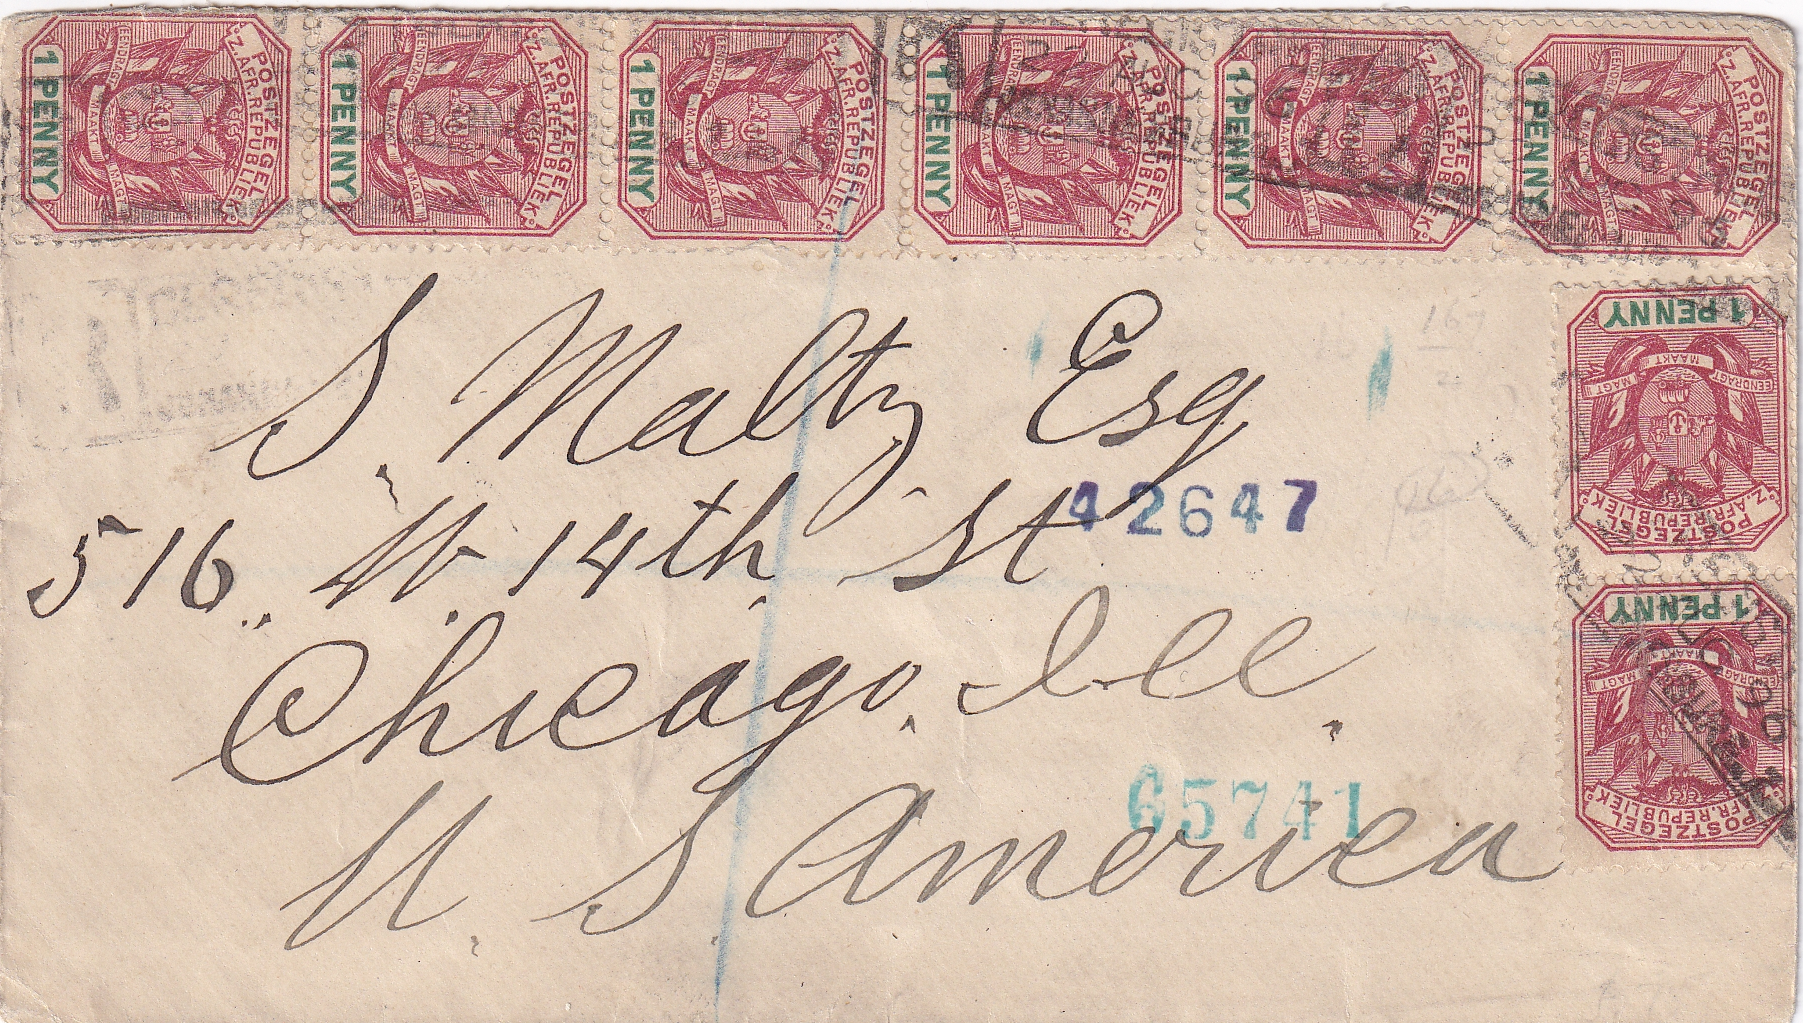 POSTZEGEL Z. AFR. REPUBLIEK. EENDRAGT MAAKT MAGT 1 PENNY
POSTZEGEL Z. AFR. REPUBLIEK. EENDRAGT MAAKT MAGT 1 PENNY
POSTZEGEL Z. AFR. REPUBLIEK. EENDRAGT MAAKT MAGT 1 PENNY
POSTZEGEL Z. AFR. REPUBLIEK. EENDRAGT MAAKT MAGT 1 PENNY
POSTZEGEL Z. AFR. REPUBLIEK. EENDRAGT MAAKT MAGT 1 PENNY
POSTZEGEL Z. AFR. REPUBLIEK. EENDRAGT MAAKT MAGT 1 PENNY
S. Maltz Esq
42647
516. W. 14th St
Chicago. Ill.
65741
U. S. America
1 PENNY EENDRAGT MAAKT MAGT POSTZEGEL Z. AFR. REPUBLIEK.
1 PENNY EENDRAGT MAAKT MAGT POSTZEGEL Z. AFR. REPUBLIEK.